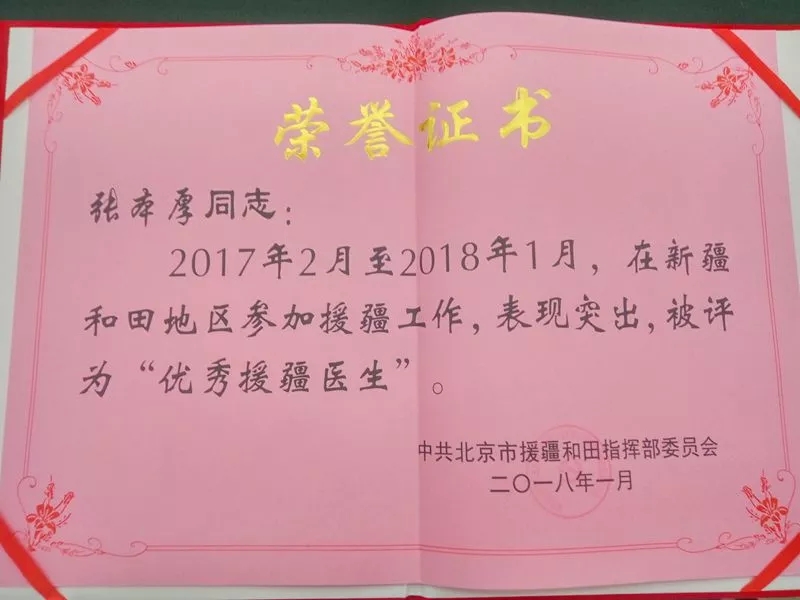 荣誉证书
张本厚同志：
2017年2月至2018年1月，在新疆
和田地区参加援疆工作，表现突出，被评
为“优秀援疆医生”。
中共北京市援疆和田指挥部委员会
二〇一八年一月